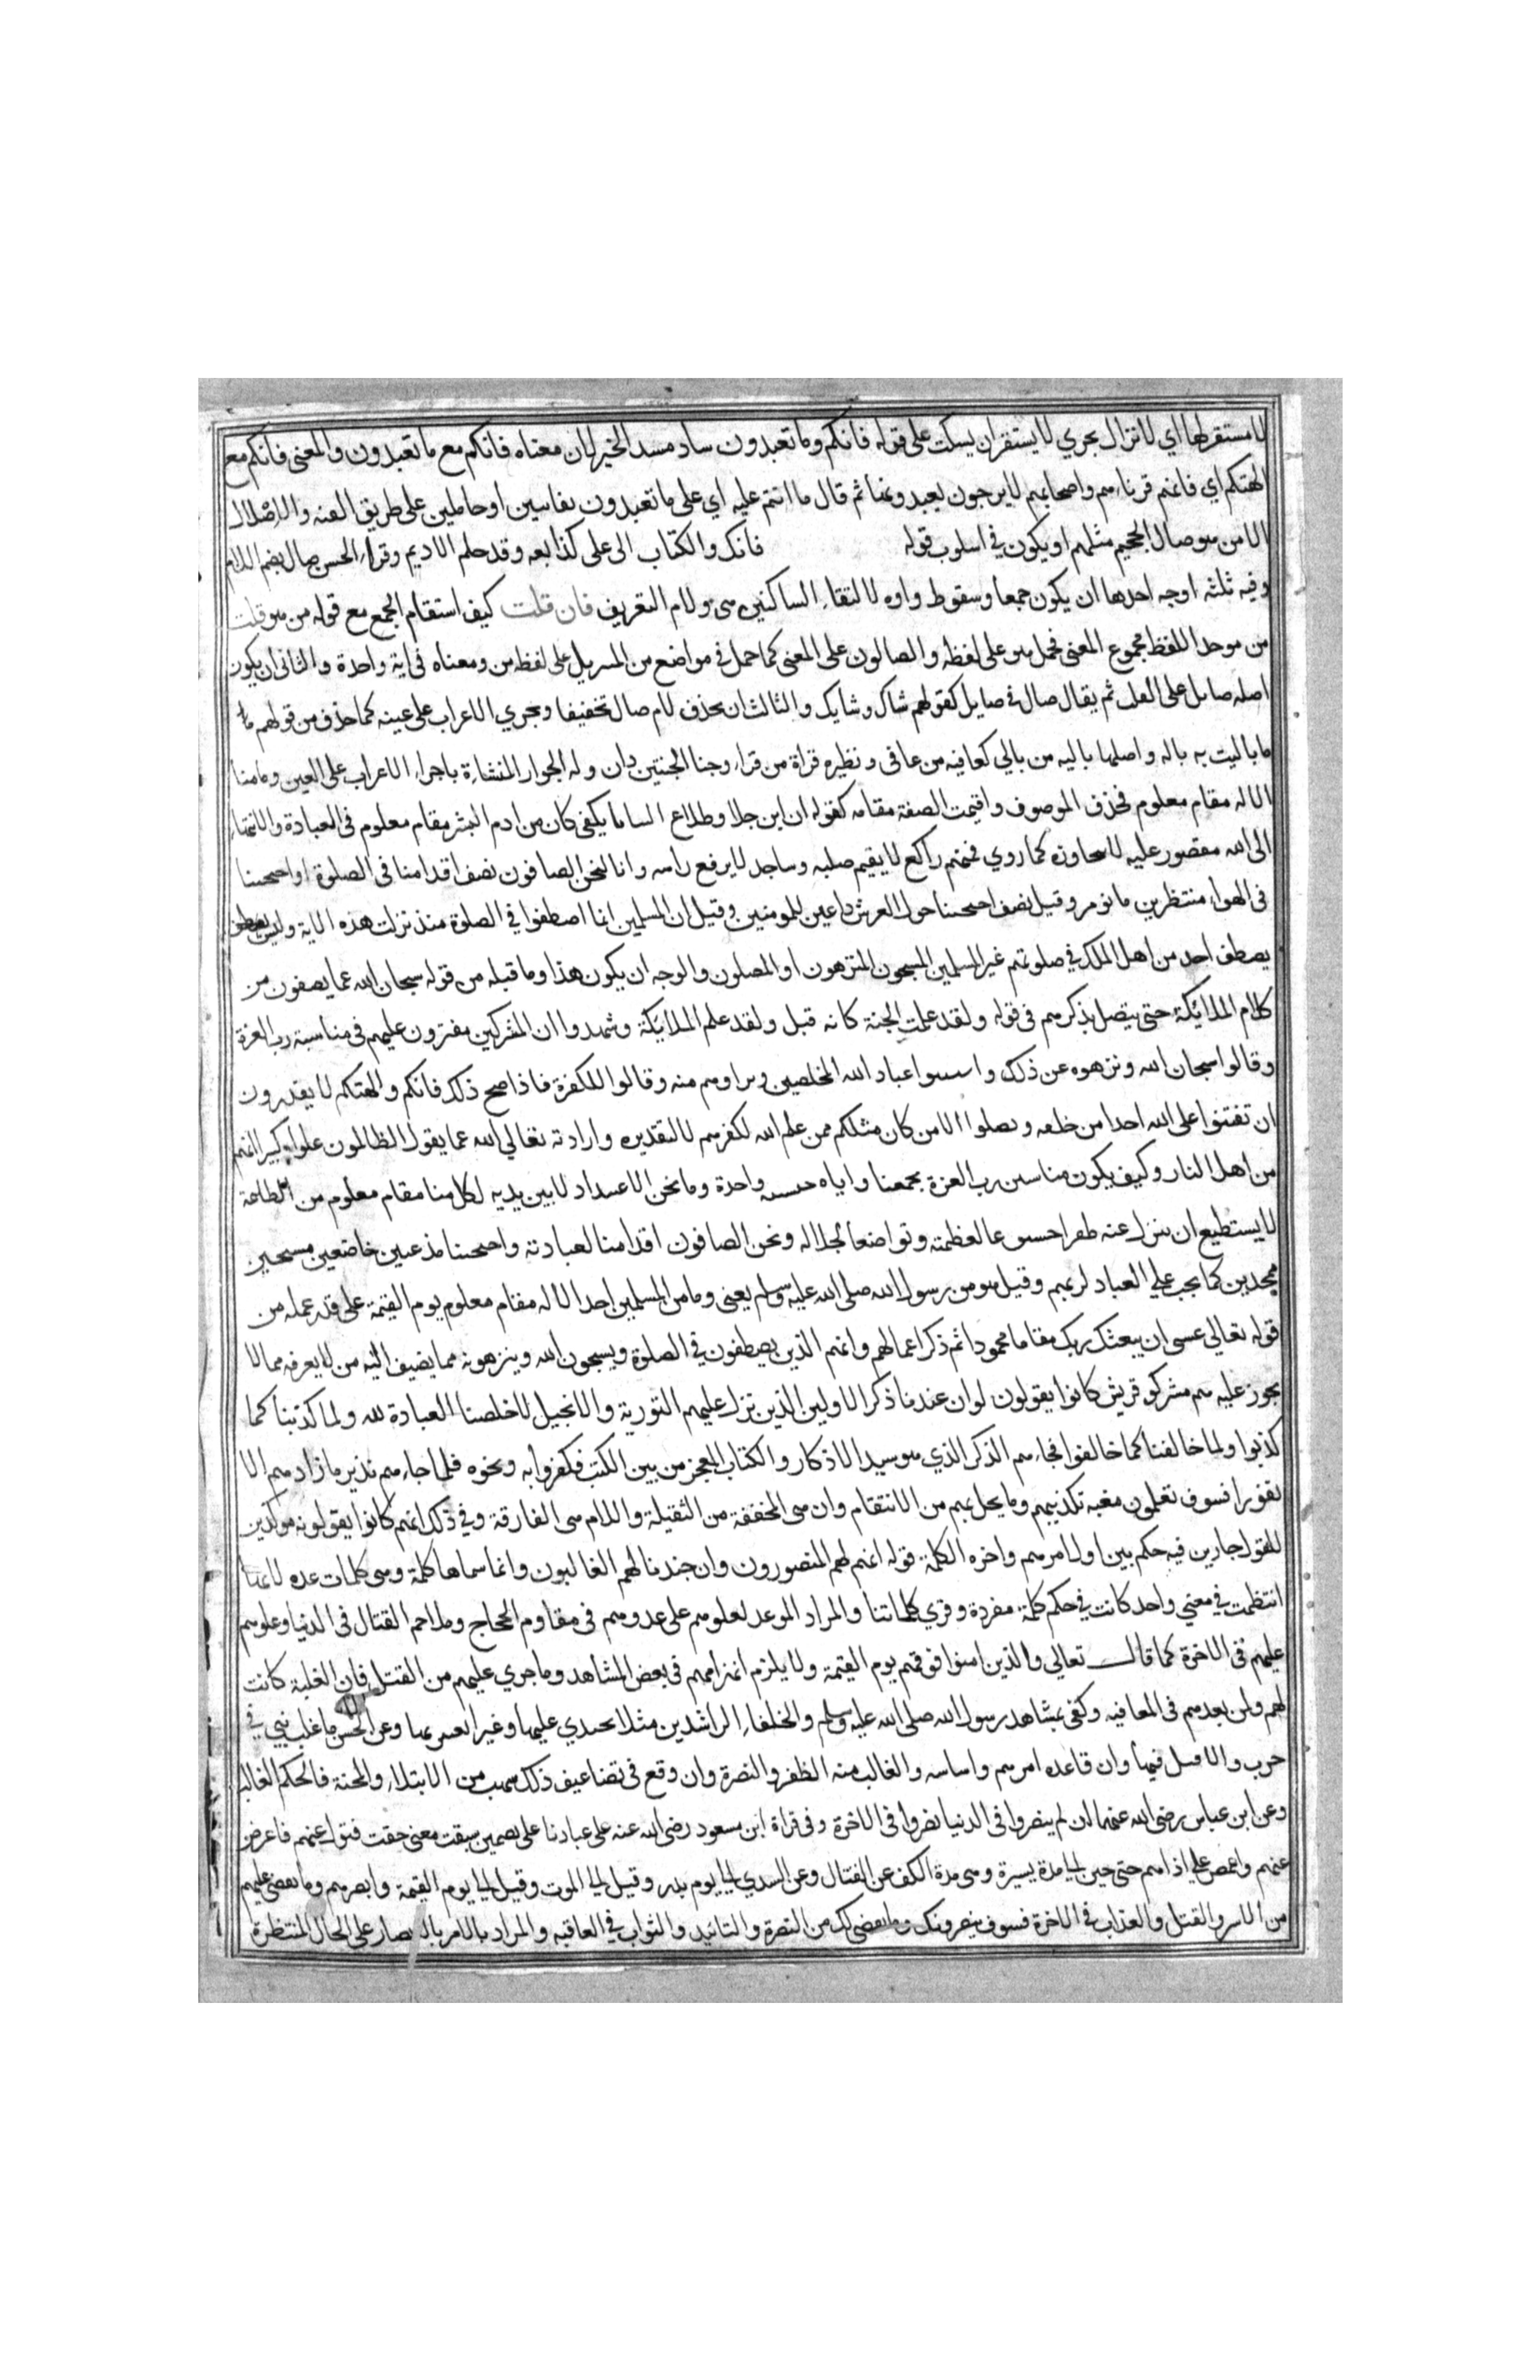 لا مستقر لها اي لا تزال تجري لا يستقر ان يسكت على قوله فانكم وما تعبدون ساد مسد الخبر لان معناه فانكم مع ما تعبدون والمعنى فانكم مع
الهتكم اي فانهم قرناءهم واصحابهم لا يبرحون يعبدونها ثم قال ما انتم عليه اي على ما تعبدون بفاتنين او حاملين على طريق الفتنه والاضلال
الا من هو صال الجحيم مثلهم او يكون في اسلوب قوله فانك والكتاب الى على كذابعه وقد حلم الاديم وقراء الحسن صال بضم اللام
وفيه ثلثه اوجه احدها ان يكون جمعا وسقوط واوه لالتقاء الساكنين هي ولام التعريف فان قلت كيف استقام الجمع مع قوله من هو قلت
من موحد اللفظ مجموع المعنى فحمل هو على لفظه والصالون على المعنى كما حمل في مواضع من التنزيل على لفظ من ومعناه في اية واحدة والثاني ان يكون
اصله صايل على القلب ثم يقال صال في صايل كقولهم شاك وشايك والثالث ان يحذف لام صال تخفيفا ويجري الاعراب على عينه كما حذف من قولهم ما
ما باليت به باله واصلها باليه من بالي كعافيه من عافى ونظيره قراة من قراء وجنا الجنتين دان وله الجوار المنشاءة باجراء الاعراب على العين وما منا
الا له مقام معلوم فحذف الموصوف واقيمت الصفة مقامه كقوله ان ابن جلا وطلاع الثنايا بكفى كان من ادم البشر مقام معلوم في العبادة والانتهاء
الى الله مقصور عليه لا يتجاوزه كما روي فمنهم راكع لا يقيم صلبه وساجد لا يرفع راسه وانا لنحن الصافون نصف اقدامنا في الصلوة او اجنحتنا
في الهواء منتظرين ما نومر وقيل نصف اجنحتنا حول العرش داعين للمومنين وقيل ان المسلمين انما اصطفوا في الصلوة منذ نزلت هذه الاية وليس
يصطف احد من اهل الملل في صلوتهم غير المسلمين المسبحون المنزهون او المصلون والوجه ان يكون هذا وما قبله من قوله سبحان الله عما يصفون من
كلام الملائكة حتى يتصل بذكرهم في قوله ولقد علمت الجنة كانه قيل ولقد علم الملائكة وشهدوا ان المشركين مفترون عليهم في مناسبة رب العزة
وقالوا سبحان الله ونزهوه عن ذلك واستثنوا عباد الله المخلصين وبراوهم منه وقالوا للكفرة فاذا صح ذلك فانكم والهتكم لا يقدرون
ان تفتنوا على الله احدا من خلقه وتضلوا الا من كان مثلكم ممن علم الله لكفرهم لا لتقديره وارادته تعالي الله عما يقول الظالمون علوا كبيرا انهم
من اهل النار وكيف يكون مناسبين رب العزة يجمعنا واياه جنسيه واحدة وما نحن الا عبيد اذلا بين يديه لكل منا مقام معلوم من الطاعة
لا يستطيع ان يزل عنه ظفرا خشوعا لعظمته وتواضعا لجلاله ونحن الصافون اقدامنا لعبادته واجنحتنا مذعنين خاضعين مسبحين
ممجدين كما يجب على العباد لربهم وقيل هو من رسول الله صلى الله عليه وسلم يعني وما من المسلمين احد الا له مقام معلوم يوم القيمة على قدر عمله من
قوله تعالى عسى ان يبعثك ربك مقاما محمودا ثم ذكر اعمالهم وانهم الذين يصطفون في الصلوة ويسبحون الله وينزهونه مما يضيف اليه من لا يعرفه مما لا
يجوز عليه هم مشركو قريش كانوا يقولون لو ان عندنا ذكرا الاولين الذين نزل عليهم التورية والانجيل لاخلصنا العبادة لله ولما كذبنا كما
كذبوا ولما خالفنا كما خالفوا فجاءهم الذكر الذي هو سيد الاذكار والكتاب المعجز من بين الكتب فكفروا به ونحوه فلما جاءهم نذير ما زادهم الا
نفورا فسوف تعلمون مغبه تكذيبهم وما يحل بهم من الانتقام وان هي المخففة من الثقيلة واللام هي الفارقة وفي ذلك انهم كانوا يقولونه موكدين
للقول جادين فيه حكم بين اول امرهم واخره الكلمة قوله انهم لهم المنصورون وان جندنا لهم الغالبون وانما سماها كلمة وهي كلمات عده لانها
انتظمت في معني واحد كانت في حكم كلمة مفردة وقري كلماتنا والمراد الموعد لعلوهم على عدوهم في مقاوم الحجاج وملاحم القتال في الدنيا وعلوهم
عليهم في الاخرة كما قال تعالى والذين امنوا فوقهم يوم القيمة ولا يلزم انهزامهم في بعض المشاهد وما جري عليهم من القتل فان الغلبة كانت
لهم ولمن بعدهم في العاقبه وكفى بمشاهد رسول الله صلى الله عليه وسلم والخلفاء الراشدين مثلا يحتذي عليها وغيرا يعتبر بها وعن الحسن ما غلب نبي في
حرب والاقتل فيها وان قاعده امرهم واساسه والغالب منه الظفر والنصرة وان وقع في تضاعيف ذلك شوب من الابتلاء والمحنة فالحكم الغالب
وعن ابن عباس رضي الله عنهما ان لم ينصروا في الدنيا نصروا في الاخرة وفي قراة ابن مسعود رضي الله عنه على عبادنا على تضمين سبقت معنى حقت فتول عنهم فاعرض
عنهم واغمض على اذاهم حتى حين الى مدة يسيرة وهي مدة الكف عن القتال وعن السدي الى يوم بدر وقيل الى الموت وقيل الى يوم القيمة وابصرهم وما يقضى عليهم
من الاسر والقتل والعذاب في الاخرة فسوف يبصرونك وما يقضى لك من النصرة والتائيد والثواب في العاقبه والمراد بالامر بالابصار على الحال المنتظرة